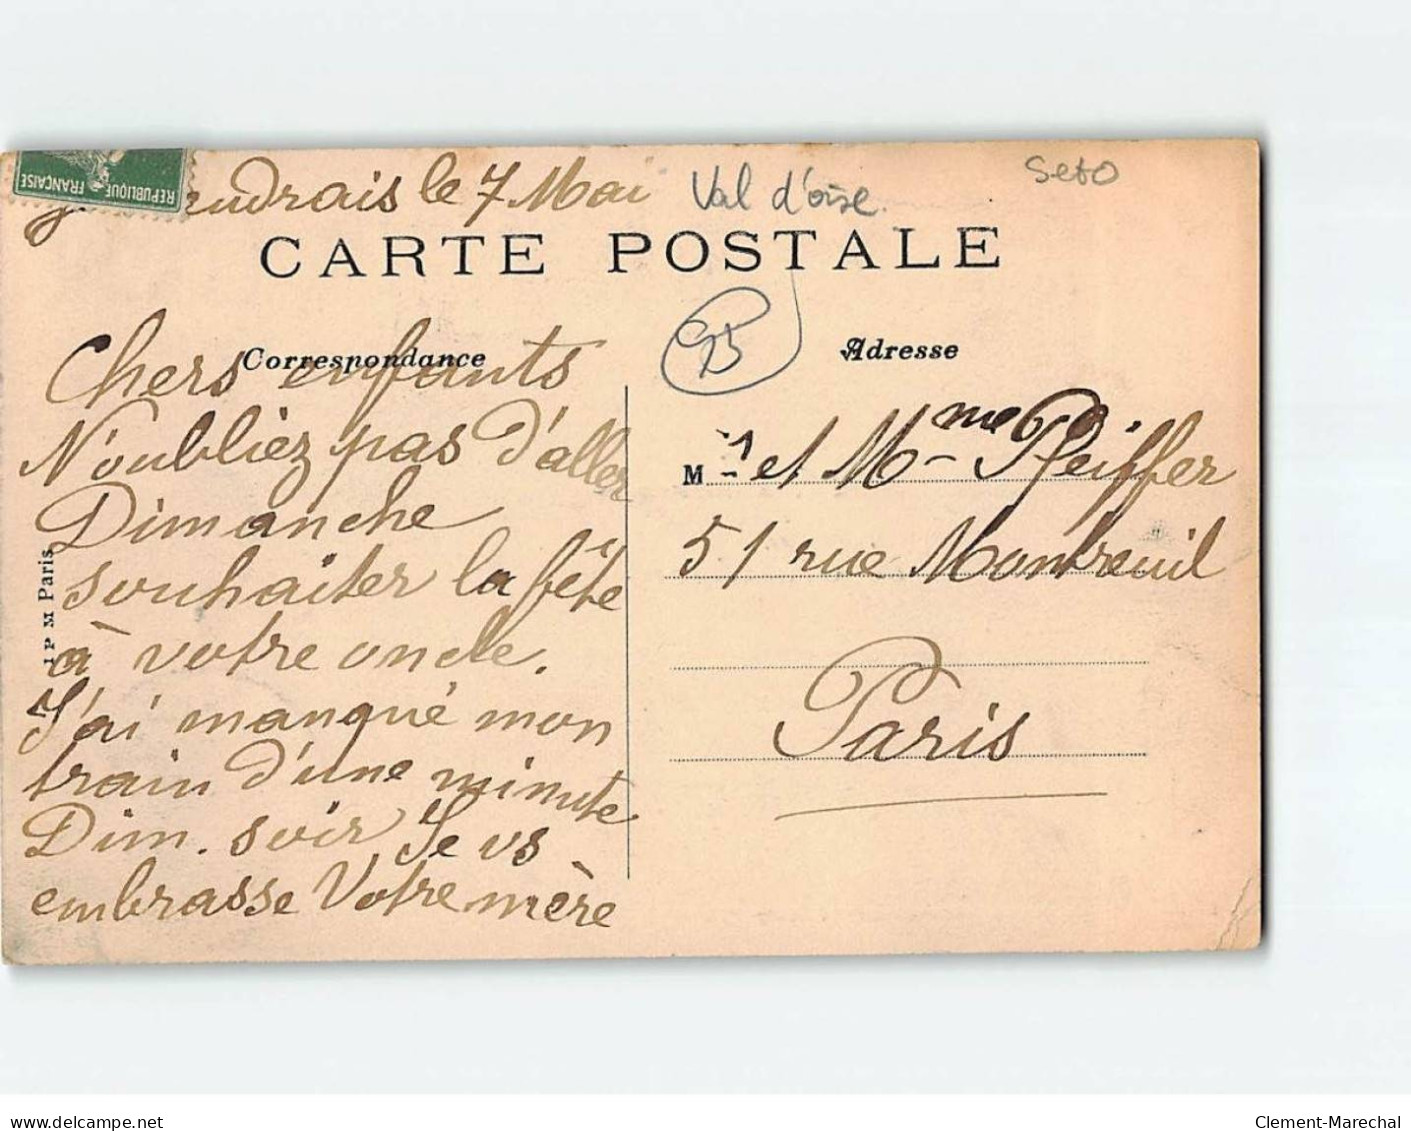 REPUBLIQUE FRANÇAISE
le 7 Mai
Val d'oise
Seto
CARTE POSTALE
95
Correspondance
Adresse
Chers enfants
N'oubliez pas d'aller
Dimanche
souhaiter la fête
à votre oncle.
J'ai manqué mon
train d'une minute
Dim. soir Je vs
embrasse Votre mère
J P M Paris
M r et Mme Pfeiffer
51 rue Montreuil
Paris
delcampe.net
Clement-Marechal